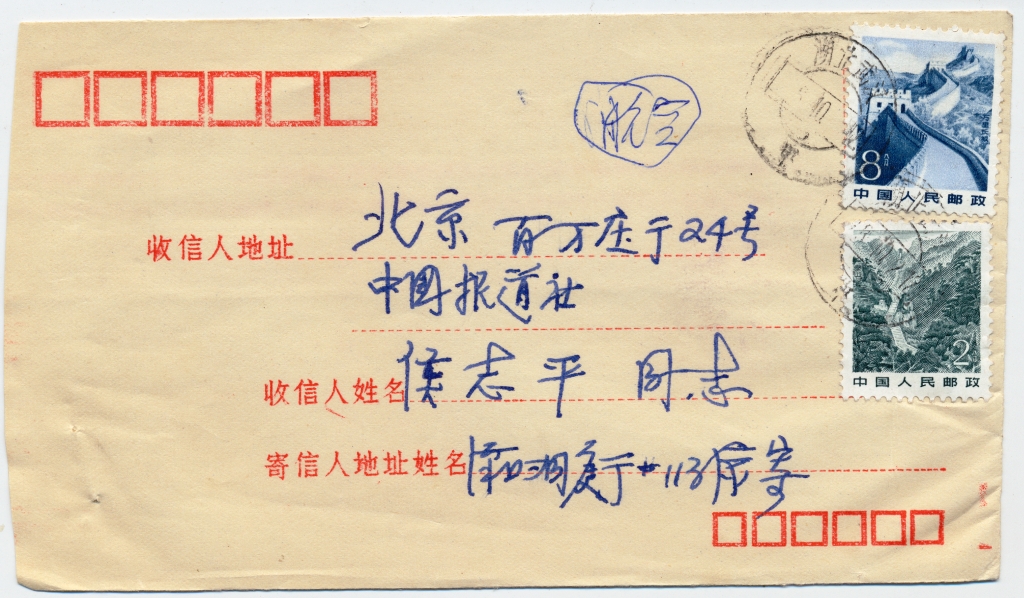 航空
8分
中国人民邮政
2
中国人民邮政
收信人地址 北京 百万庄于24号
中国报道社
收信人姓名 侯志平 同志
寄信人地址姓名